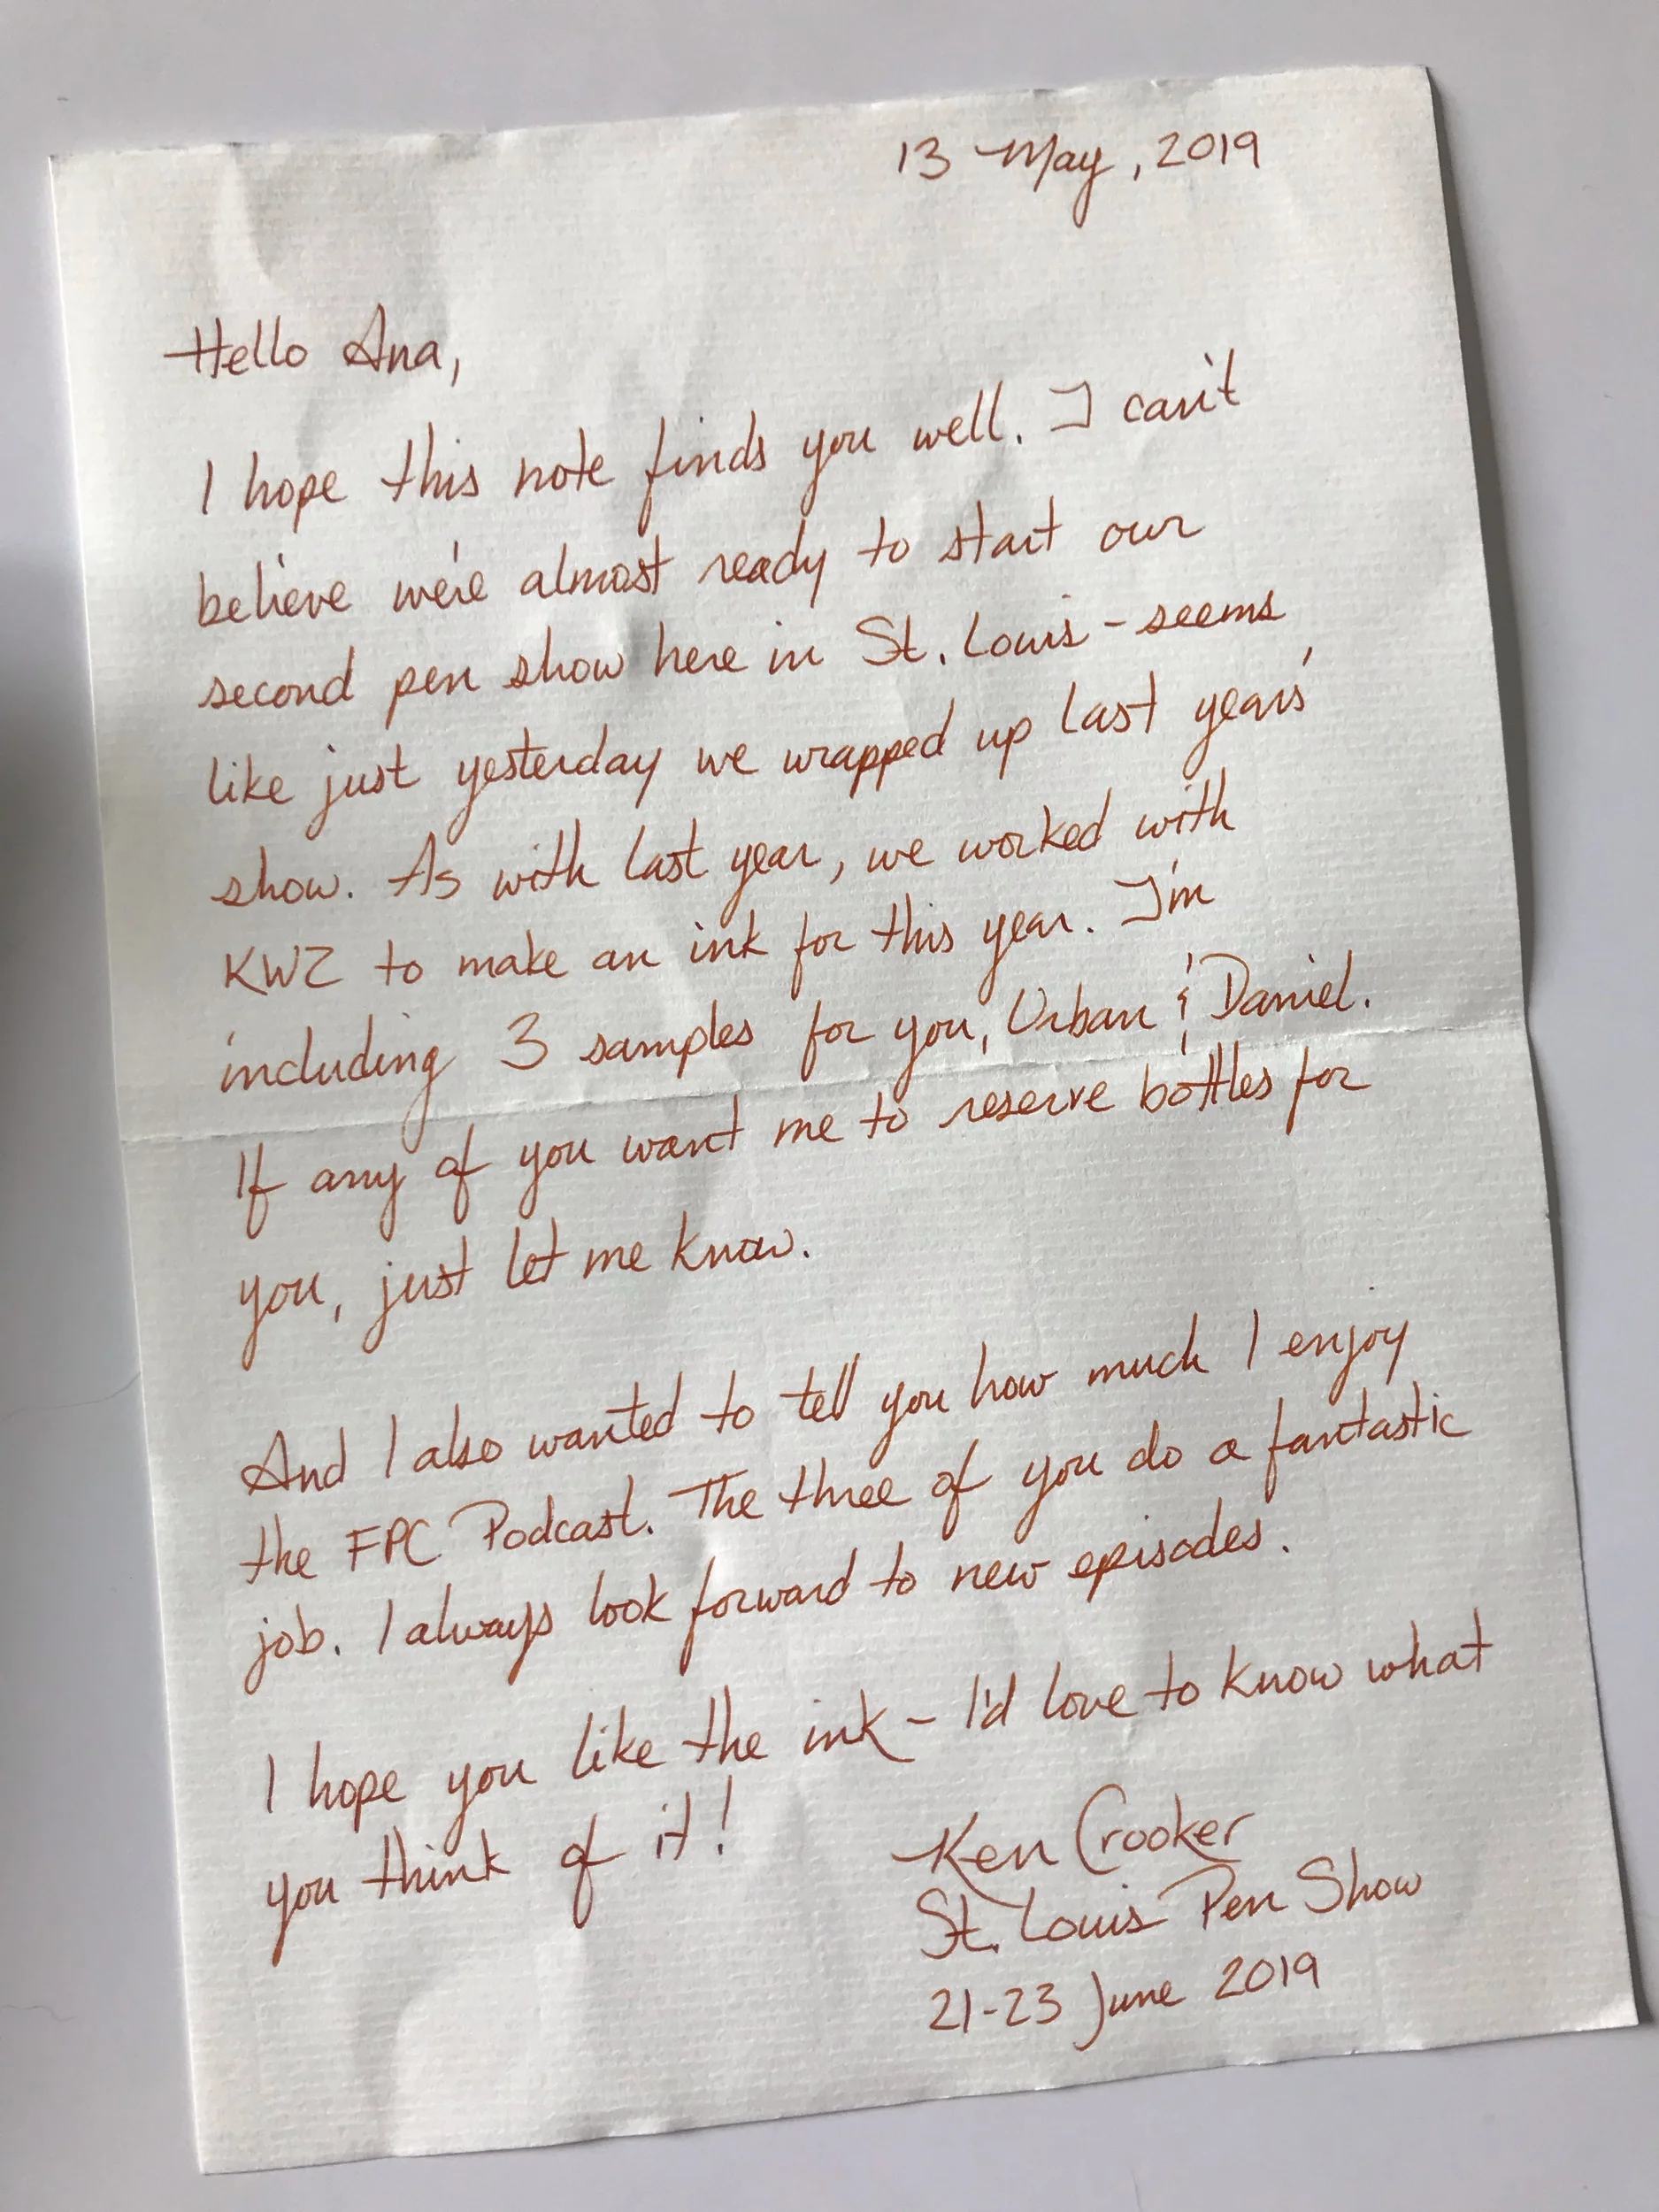 13 May, 2019
Hello Ana,
I hope this note finds you well. I can't
believe we're almost ready to start our
second pen show here in St. Louis - seems
like just yesterday we wrapped up last years'
show. As with last year, we worked with
KWZ to make an ink for this year. I'm
including 3 samples for you, Urban & Daniel.
If any of you want me to reserve bottles for
you, just let me know.
And I also wanted to tell you how much I enjoy
the FPC Podcast. The three of you do a fantastic
job. I always look forward to new episodes.
I hope you like the ink - I'd love to know what
you think of it!
Ken Crooker
St. Louis Pen Show
21-23 June 2019